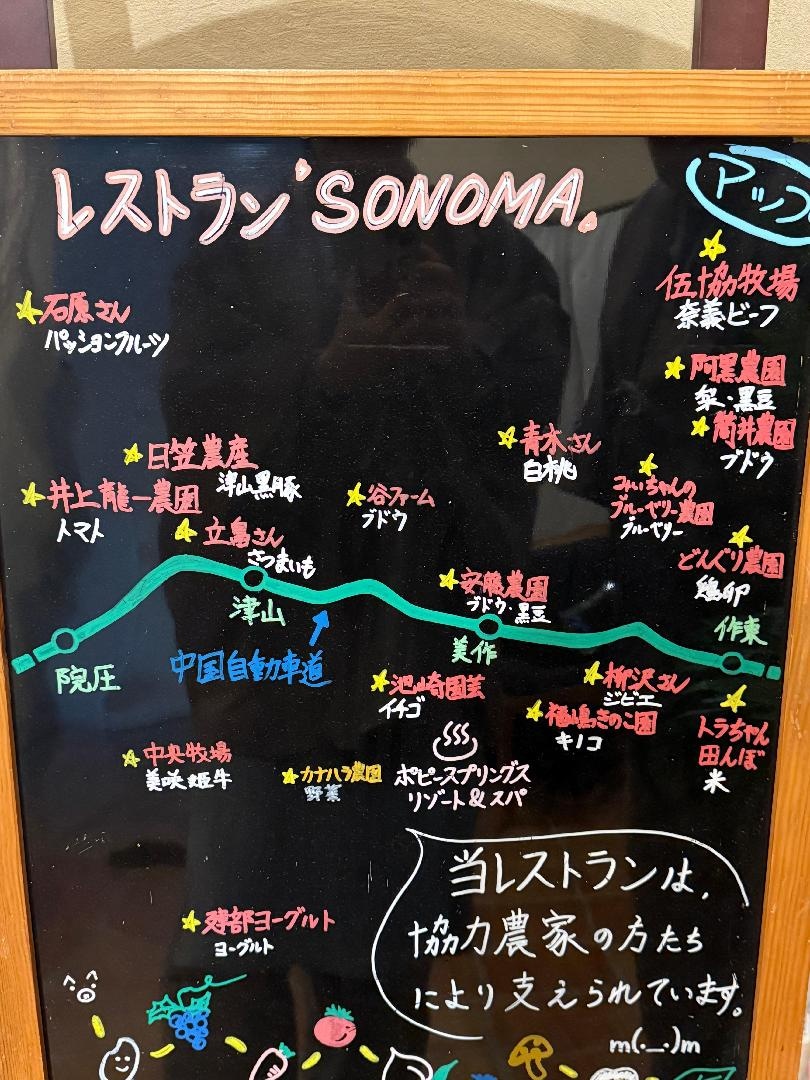 レストラン'SONOMA.
アップ
伍協牧場
奈義ビーフ
石原さん
パッションフルーツ
阿黒農園
梨・黒豆
筒井農園
ブドウ
青木さん
白桃
日笠農産
津山黒豚
井上龍一農園
トマト
谷ファーム
ブドウ
みぃちゃんの
ブルーベリー農園
ブルーベリー
立島さん
さつまいも
どんぐり農園
鶏卵
安藤農園
ブドウ・黒豆
津山
作東
美作
院庄
中国自動車道
池崎園芸
イチゴ
柳沢さん
ジビエ
福嶋きのこ園
キノコ
トラちゃん
田んぼ
米
中央牧場
美咲姫牛
カナハラ農園
野菜
ポピースプリングス
リゾート&スパ
当レストランは、
協力農家の方たち
により支えられています。
m(._.)m
ヨーグルト
ヨーグルト